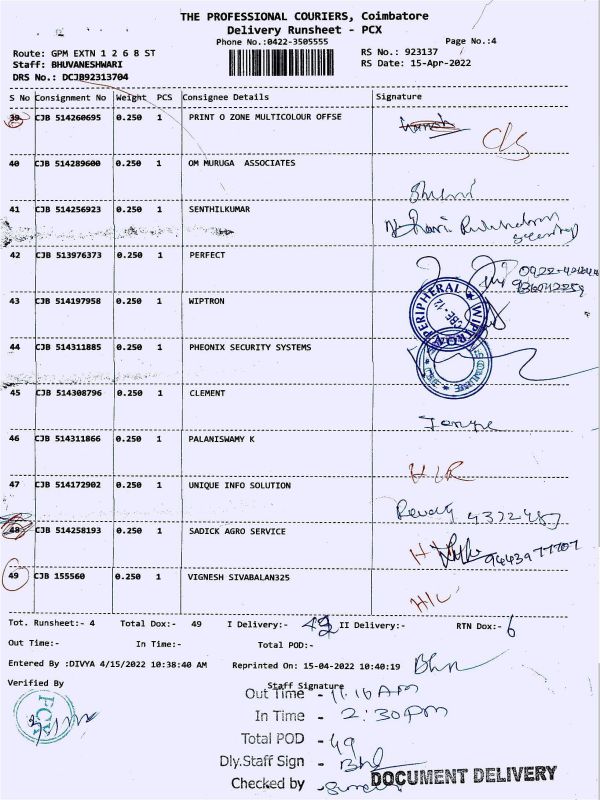 THE PROFESSIONAL COURIERS, Coimbatore
Delivery Runsheet - PCX
Phone No.:0422-3505555
Page No.:4
Route: GPM EXTN 1 2 6 8 ST
RS No.: 923137
Staff: BHUVANESHWARI
RS Date: 15-Apr-2022
DRS No.: DCJB92313704
S No Consignment No Weight PCS Consignee Details Signature
39 CJB 514260695 0.250 1 PRINT O ZONE MULTICOLOUR OFFSE
40 CJB 514289600 0.250 1 OM MURUGA ASSOCIATES
41 CJB 514256923 0.250 1 SENTHILKUMAR
42 CJB 513976373 0.250 1 PERFECT
43 CJB 514197958 0.250 1 WIPTRON
PERIPHERAL WIPTRON CBE-12
44 CJB 514311885 0.250 1 PHEONIX SECURITY SYSTEMS
45 CJB 514308796 0.250 1 CLEMENT
46 CJB 514311866 0.250 1 PALANISWAMY K
H/R
47 CJB 514172902 0.250 1 UNIQUE INFO SOLUTION
48 CJB 514258193 0.250 1 SADICK AGRO SERVICE
49 CJB 155560 0.250 1 VIGNESH SIVABALAN325
Tot. Runsheet:- 4 Total Dox:- 49 I Delivery:- II Delivery:- RTN Dox:- 6
Out Time:- In Time:- Total POD:-
Entered By :DIVYA 4/15/2022 10:38:40 AM Reprinted On: 15-04-2022 10:40:19
Verified By Staff Signature
PCX
Out Time - 11.10 AM
In Time - 2:30 PM
Total POD - 49
Dly.Staff Sign -
Checked by -
DOCUMENT DELIVERY